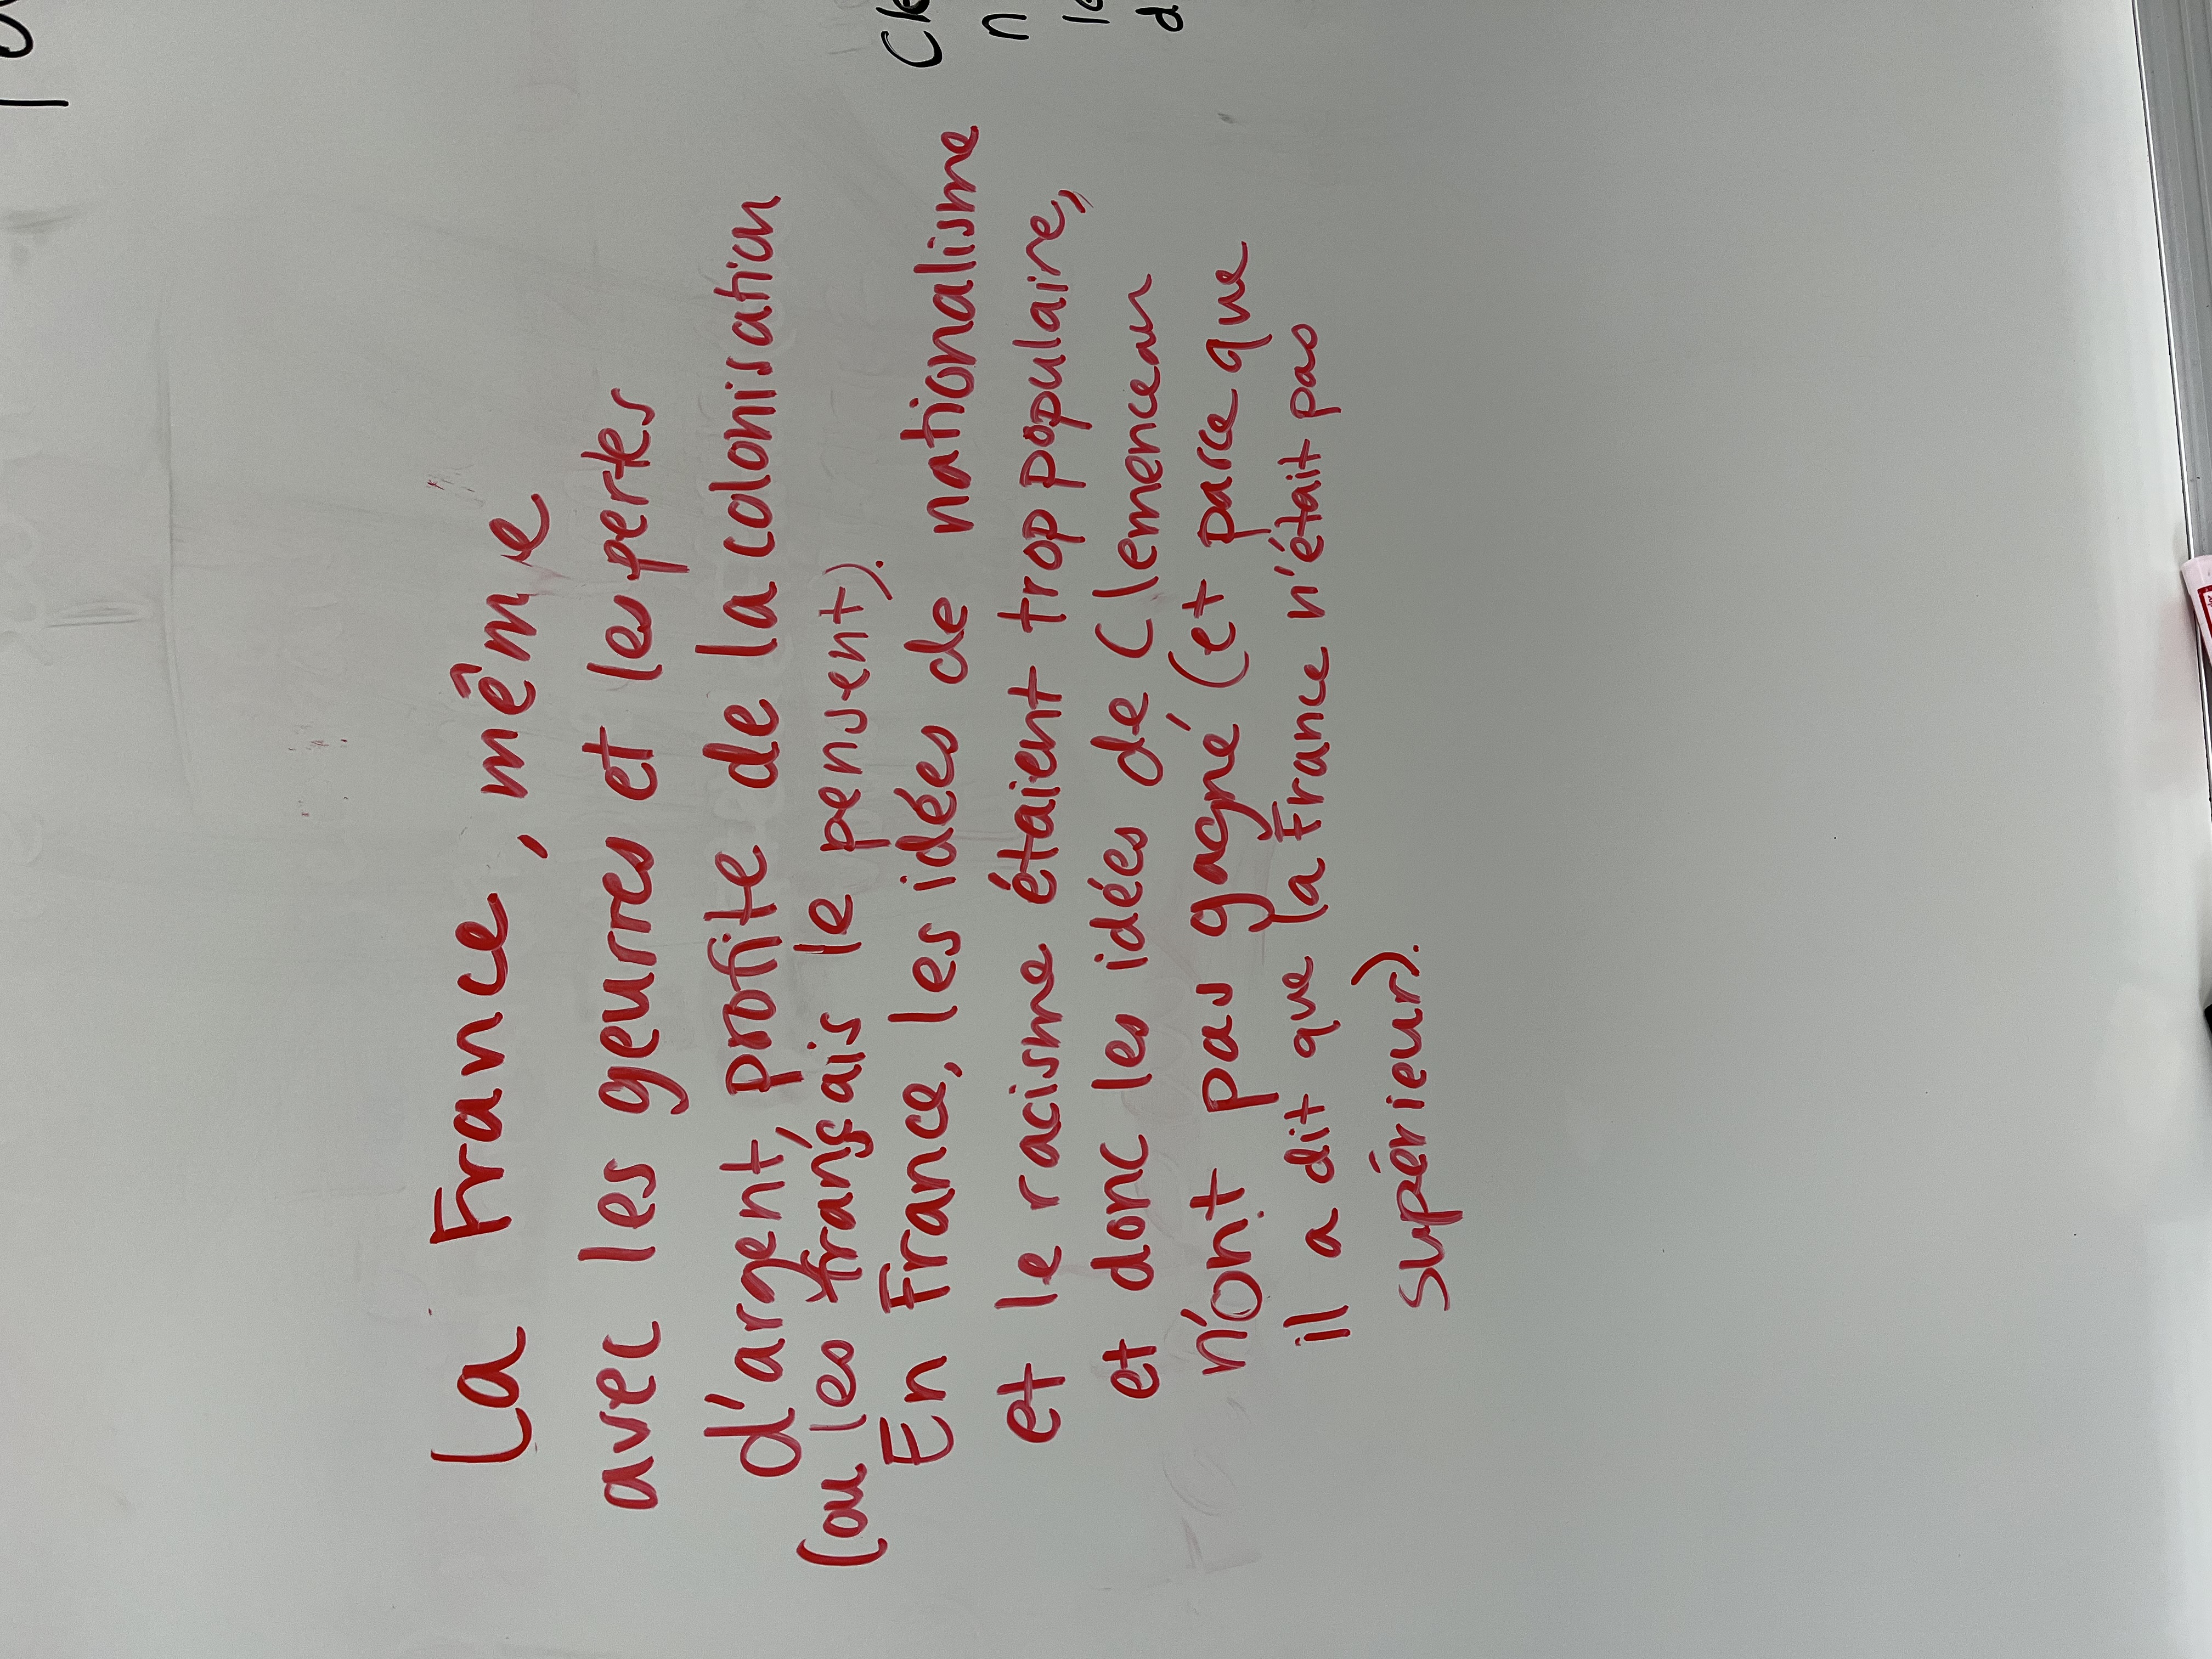 La France, même
avec les geurres et les pertes
d'argent, profite de la colonisation
(ou les français le pensent).
En France, les idées de nationalisme
et le racisme étaient trop populaire,
et donc les idées de Clemenceau
n'ont pas gagné (et parce que
il a dit que la France n'était pas
supérieur).
Cle
n
le
d